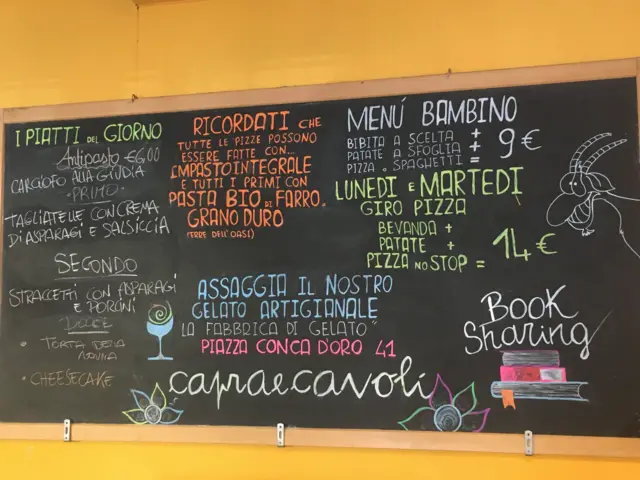 I PIATTI DEL GIORNO
Antipasto €6,00
CARCIOFO ALLA GIUDIA
• PRIMO •
TAGLIATELLE CON CREMA
DI ASPARAGI E SALSICCIA
SECONDO
STRACCETTI CON ASPARAGI
E PORCINI
DOLCE
• TORTA DELLA
NONNA
• CHEESECAKE
RICORDATI CHE
TUTTE LE PIZZE POSSONO
ESSERE FATTE CON...
IMPASTO INTEGRALE
E TUTTI I PRIMI CON
PASTA BIO DI FARRO.
GRANO DURO
(TERRE DELL'OASI)
MENÚ BAMBINO
BIBITA A SCELTA +
PATATE A SFOGLIA + 9€
PIZZA o SPAGHETTI =
LUNEDI E MARTEDI
GIRO PIZZA
BEVANDA +
PATATE + 14 €
PIZZA NO STOP =
ASSAGGIA IL NOSTRO
GELATO ARTIGIANALE
LA FABBRICA DI GELATO"
PIAZZA CONCA D'ORO 41
capraecavoli
BOOK
Sharing